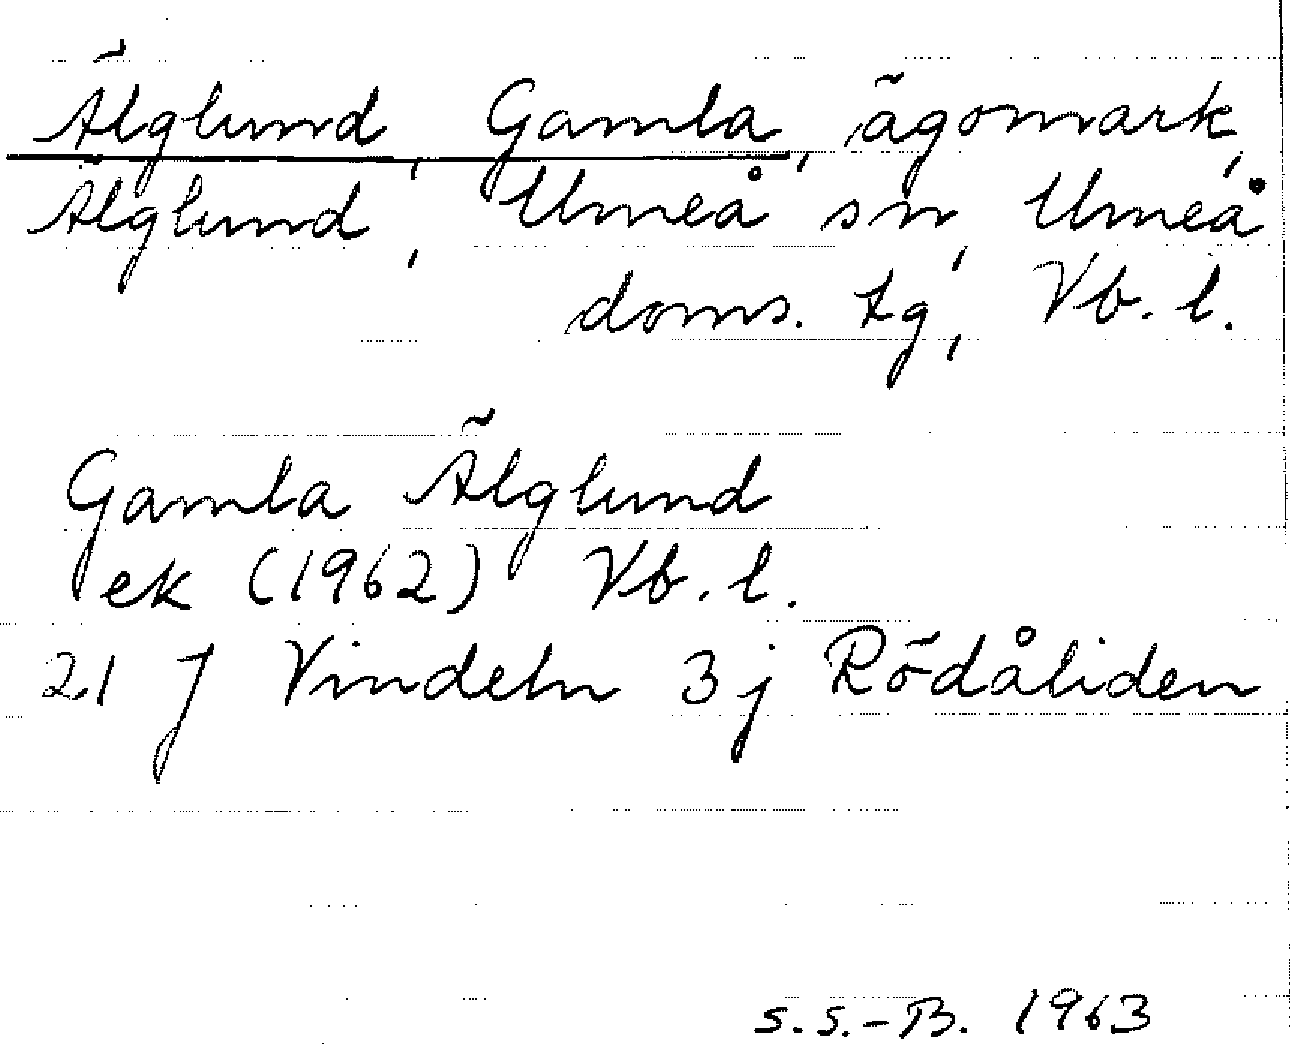 Älglund, Gamla, ägomark,
Älglund, Umeå sn, Umeå
doms. tg, Vb. l.
Gamla Älglund
ek (1962) Vb. l.
21 J Vindeln 3 j Rödåliden
S.S.-B. 1963